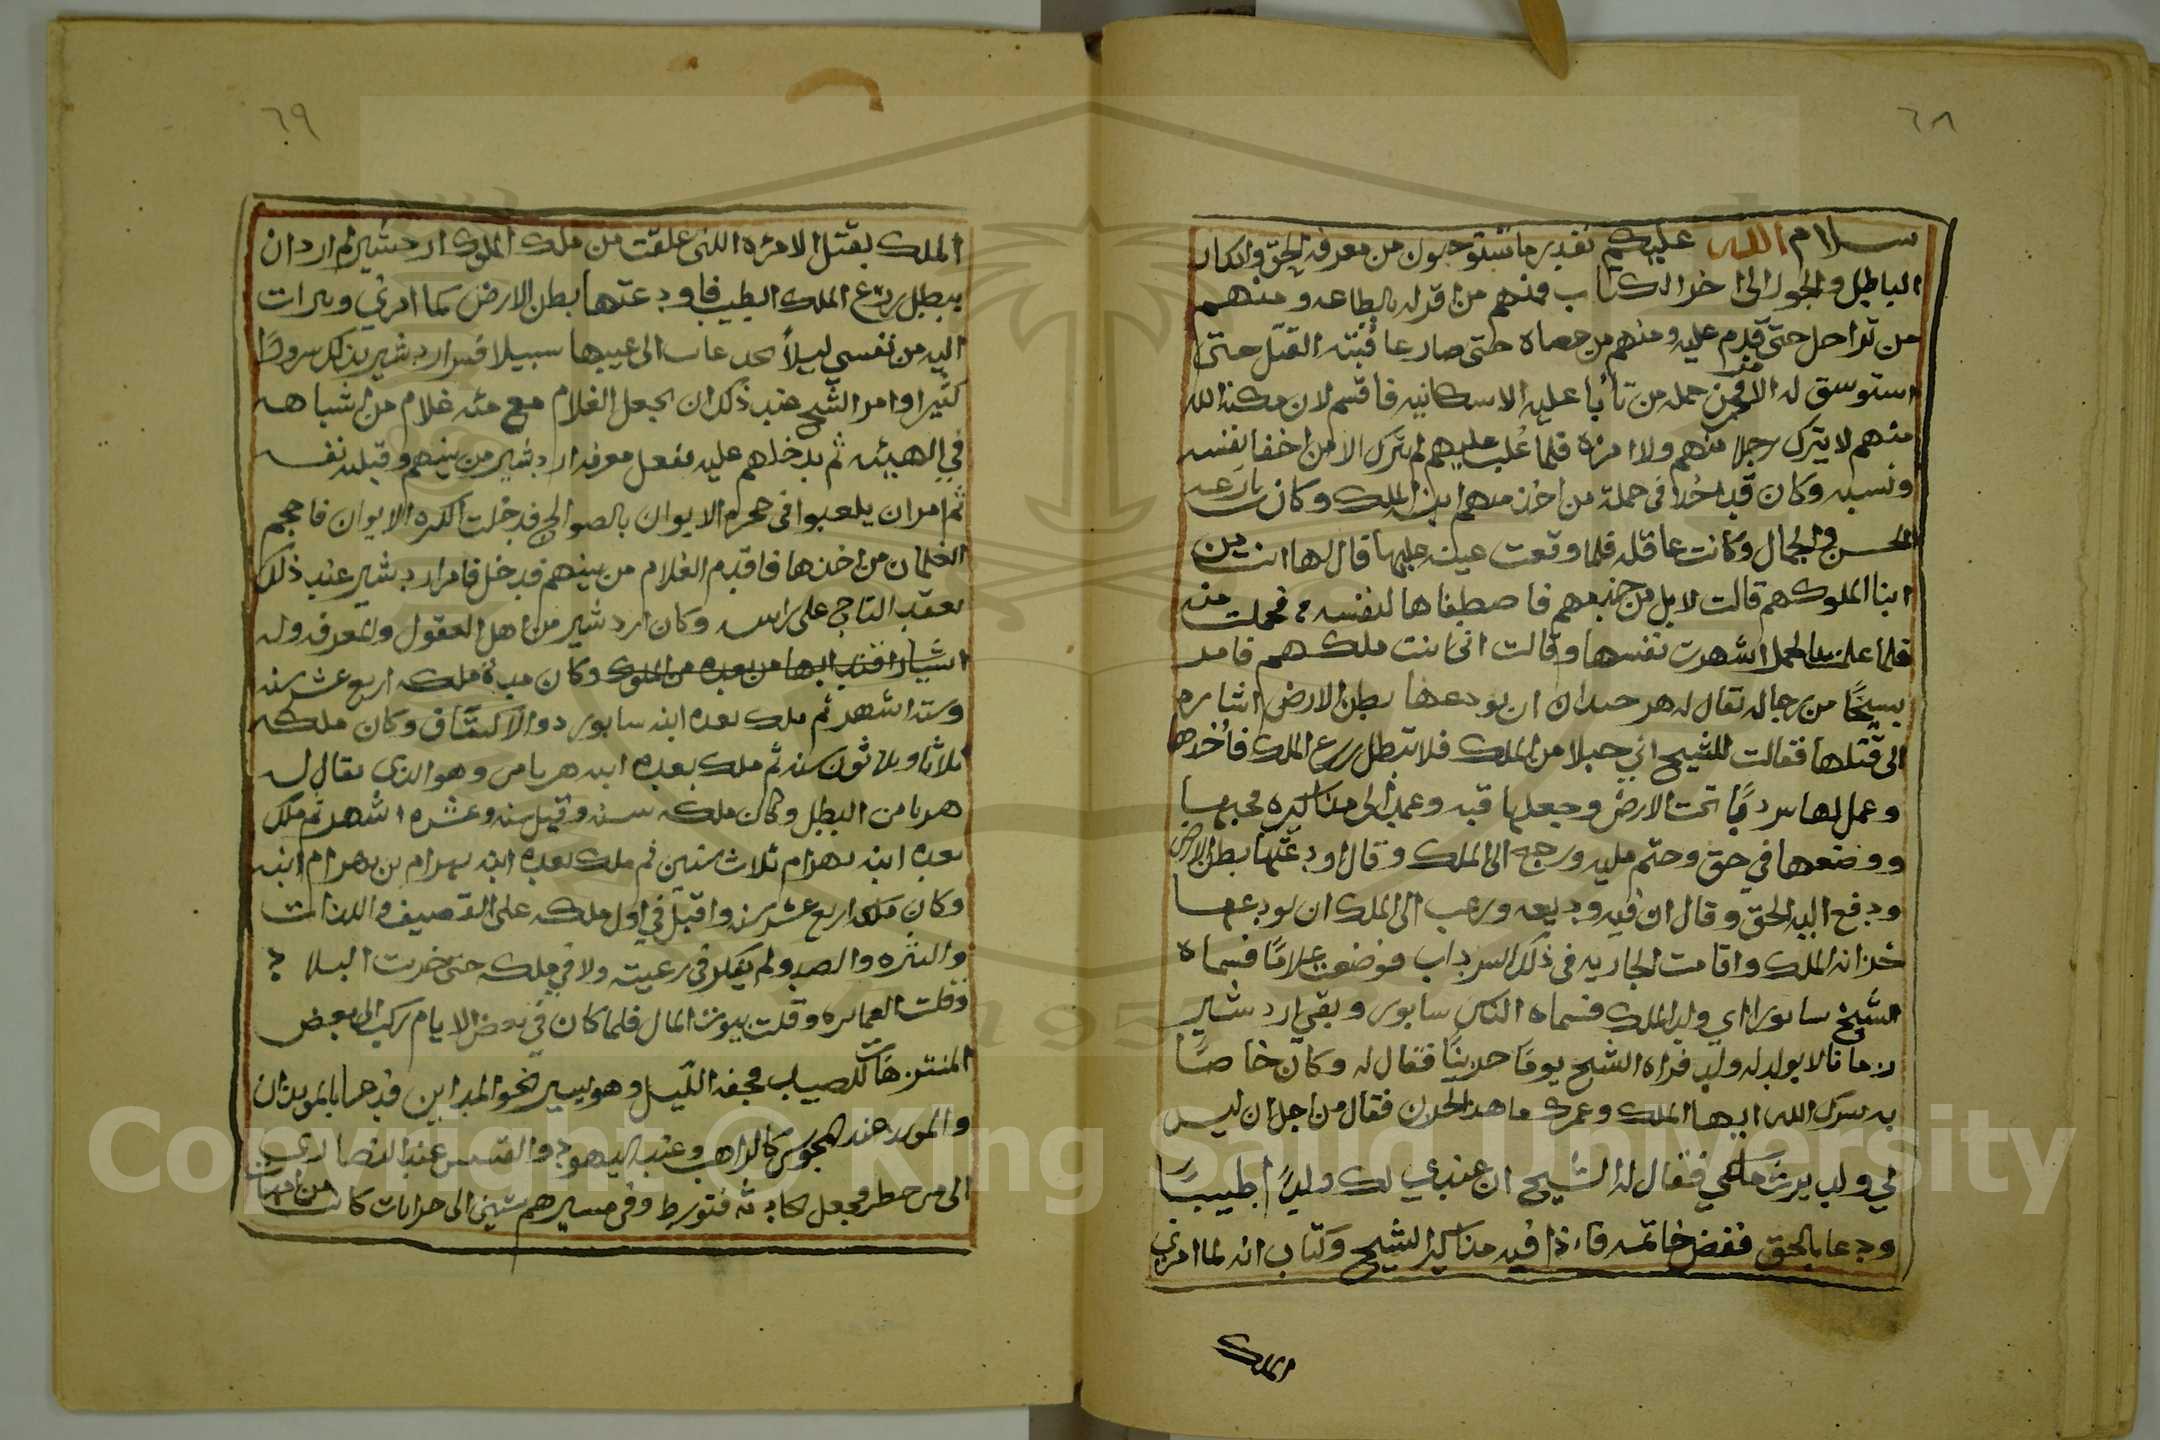 ٦٨
سلام الله عليكم بقدر ما تستوجبون من معرفه الحق وانكار
الباطل والجور الى اخر الكتاب فمنهم من اقر له بالطاعه ومنهم
من تراحل حتى قدم عليه ومنهم من عصاه حتى صار عاقبته القتل حتى
استوسق له الامر فمن حمله من تأبا عليه الاسكانيه فاقسم لان مكنه الله
منهم لا يترك رجلا منهم ولا امرءه فلما غلب عليهم لم يترك الا من اخفا نفسه
ونسبه وكان قد اخذ في حملة من اخذ منهم ابنه الملك وكان بارعه
الحسن والجمال وكانت عاقله فلما وقعت عينه عليها قال لها انت من
ابنا الملوك هم قالت لا بل من خدمهم فاصطفاها لنفسه فحملت منه
فلما علمت بالحمل اشهرت نفسها وقالت انى ابنت ملكهم فامر
شيخا من رجاله يقال له هرجبدان ان يودعها بطن الارض اشاره
الى قتلها فقالت للشيخ اني حبلا من الملك فلا تبطل زرع الملك فأخذها
وعمل لها سردابا تحت الارض وجعلها فيه وعمد الى مذاكيره فجبها
ووضعها في حق وختم عليه ورجع الى الملك وقال اودعتها بطن الارض
ودفع اليه الحق وقال ان فيه وديعه ورغب الى الملك ان يودعها
خزانه الملك واقامت الجاريه فى ذلك السرداب فوضعت غلامًا فسماه
الشيخ سابورا اي ولد الملك فسماه الناس سابور وبقى اردشير
زمانا لا يولد له ولد فراه الشيخ يومًا حزينًا فقال له وكان خاصًا
به سرك الله ايها الملك وعمرك ما هذا الحزن فقال من اجل ان ليس
لي ولد يرث ملكي فقال له الشيخ ان عندي لك ولدًا طيبًا
ودعا بالحق ففض خاتمه فاذا فيه مذاكير الشيخ وكتاب انه لما امرني
الملك
٦٩
الملك بقتل الامرءه اللتى علقت من ملك الملوك اردشير لم ارد ان
يبطل زرع الملك الطيب فاودعتها بطن الارض كما امرني وبرات
اليه من نفسي ليلاً يجد عاب الى عيبها سبيلا فسر اردشير بذلك سرورًا
كثيرا وامر الشيخ عند ذلك ان يجعل الغلام مع مئه غلام من اشباهه
في الهيئه ثم يدخلهم عليه ففعل معرفه اردشير من بينهم وقبله نفسه
ثم امر ان يلعبوا فى حجرة الايوان بالصوالج فدخلت الكره الايوان فاحجم
الغلمان من اخذها فاقدم الغلام من بينهم فدخل فامر اردشير عند ذلك
بعقد التاج على راسه وكان اردشير من اهل العقول والمعرفه وله
اشيا اقتدى بها من بعده من الملوك وكان مدة ملكه اربع عشر سنه
وسته اشهر ثم ملك بعده ابنه سابور ذو الاكتاف وكان ملكه
ثلاثا وثلاثون سنه ثم ملك بعده ابنه هرمز وهو الذي يقال له
هرمز البطل وكان ملكه سنه وقيل سنه وعشره اشهر ثم ملك
بعده ابنه بهرام ثلاث سنين ثم ملك بعده ابنه بهرام بن بهرام ابنه
وكان ملكه اربع عشر سنه واقبل في اول ملكه على القصف واللذات
والنزه والصيد ولم يفكر فى رعيته ولا في ملكه حتى خربت البلاد
وقلت العماره وقلت بيوت المال فلما كان في بعض الايام ركب الى بعض
المنتزهات للصيد فجنه الليل وهو يسير نحو المداين فدعا بالموبذان
والموبذ عند المجوس كالراهب وعند اليهود والقسس عند النصارى
الى من خطر فجعل يحادثه فتوسط فى مسيرهم شيى الى خرابات كانت من امهات